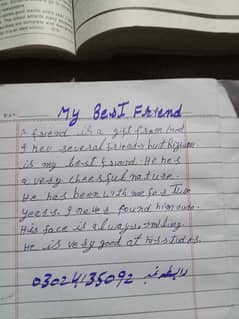 My BesT Friend
A friend is a gift from God
I hev several friends but
is my best friend. He hes
a very cheerful nature.
He has been with me for Two
Years, I never found him
His face is always smiling.
He is very good at his studies.
03024135092 رابطہ نمبر